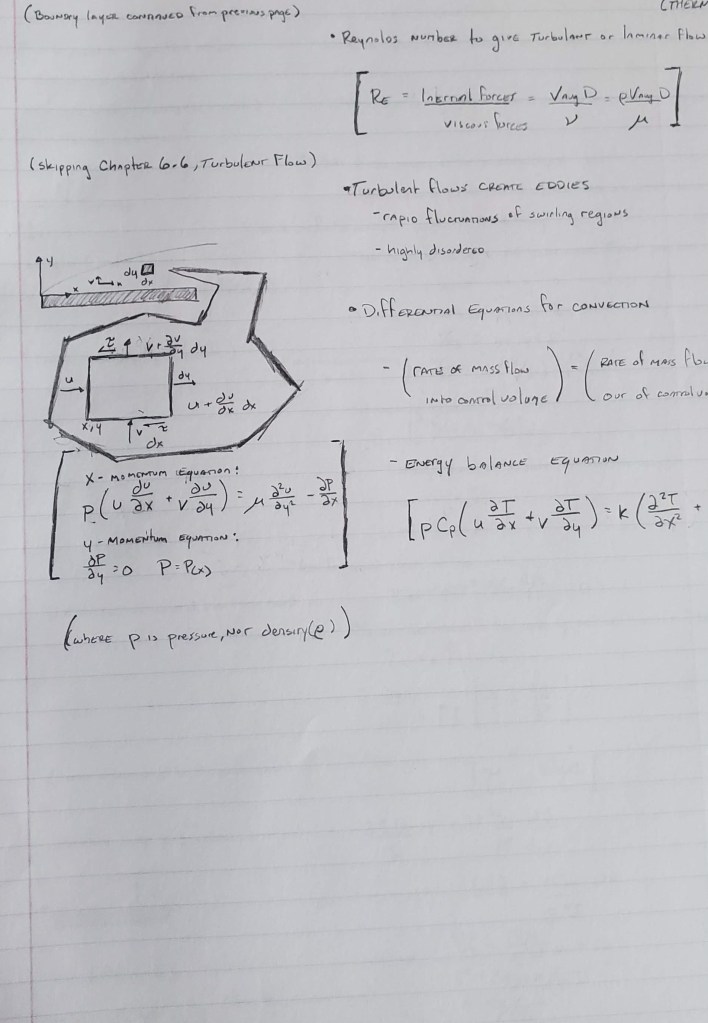 (Boundary layer continued from previous page)
(THERM
• Reynolds number to give Turbulent or laminar Flow
[ RE = Internal Forces / viscous forces = VAvg D / ν = ρVAvg D / μ ]
(skipping Chapter 6-6, Turbulent Flow)
• Turbulent flows CREATE EDDIES
- rapid fluctuations of swirling regions
- highly disordered
y
v
x
x
dy
dx
• Differential Equations for CONVECTION
τ
v + ∂v/∂y dy
- (RATES of MASS flow into control volume) = (RATE of MASS flo out of control vo
u
dy
u + ∂u/∂x dx
x,y
v
τ
dx
- ENERGY balance EQUATION
[ρCp(u ∂T/∂x + v ∂T/∂y) = k(∂²T/∂x² +
X - MOMENTUM EQUATION:
P(u ∂u/∂x + v ∂u/∂y) = μ ∂²u/∂y² - ∂P/∂x
y - MOMENTUM EQUATION:
∂P/∂y = 0   P = P(x)
(WHERE P is pressure, NOT density(ρ))